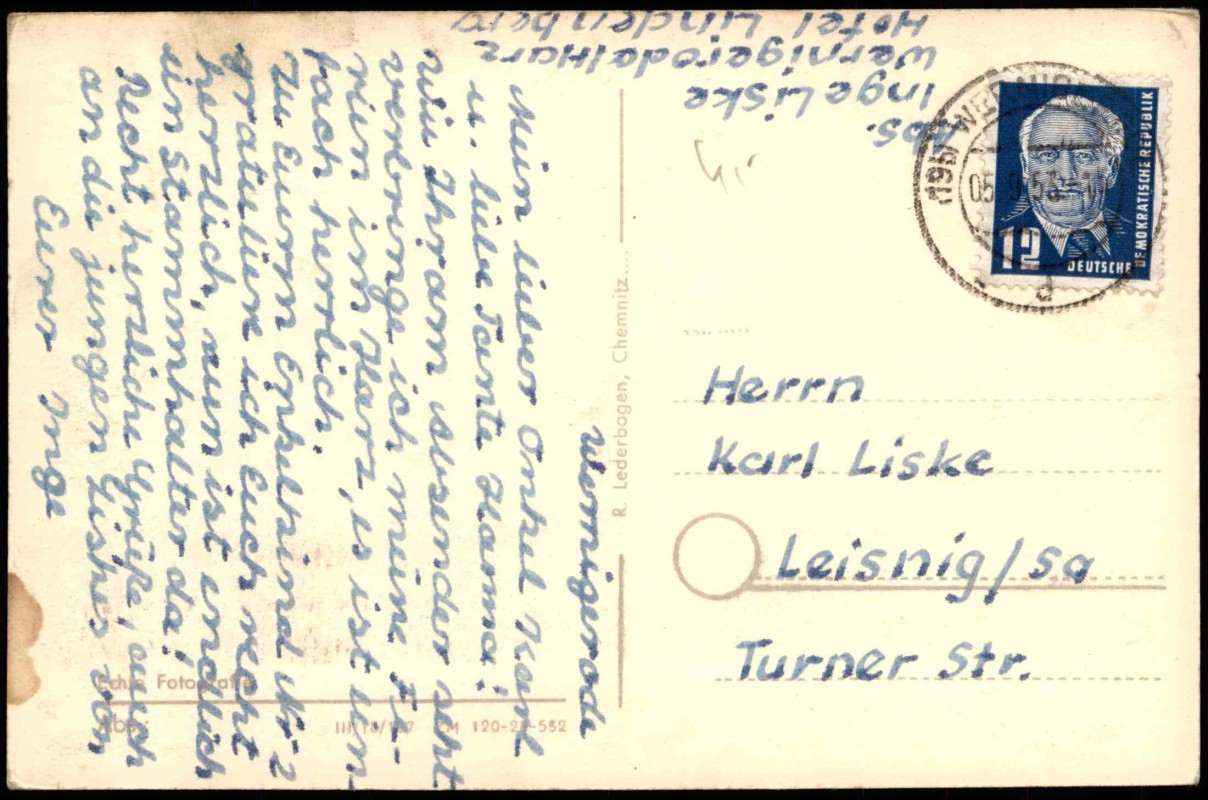 Abs.
Inge Liske
Wernigerode/Harz
Hotel Lindenberg
Wernigerode
Mein lieber Onkel Karl
u. liebe Tante Hanna!
Wie Ihr am Absender seht
verbringe ich meine Fe-
rien im Harz, es ist ein-
fach herrlich.
Zu Eurem Enkelkind Nr. 2
gratuliere ich Euch recht
herzlich, nun ist endlich
ein Stammhalter da!
Recht herzliche Grüße, auch
an die jungen Lishes von
Eurer Inge
R. Lederbogen, Chemnitz
Echte Fotografie
Abs.
III/18/187 ZM 120-25-552
(19b) WERNIG
05.9.5
d
12
DEUTSCHE
DEMOKRATISCHE REPUBLIK
Herrn
Karl Liske
Leisnig/Sa
Turner Str.